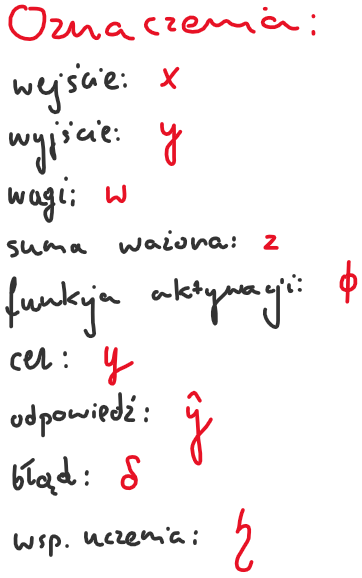 Oznaczenia:
wejście: x
wyjście: y
wagi: w
suma ważona: z
funkcja aktywacji: ϕ
cel: y
odpowiedź: ŷ
błąd: δ
wsp. uczenia: η